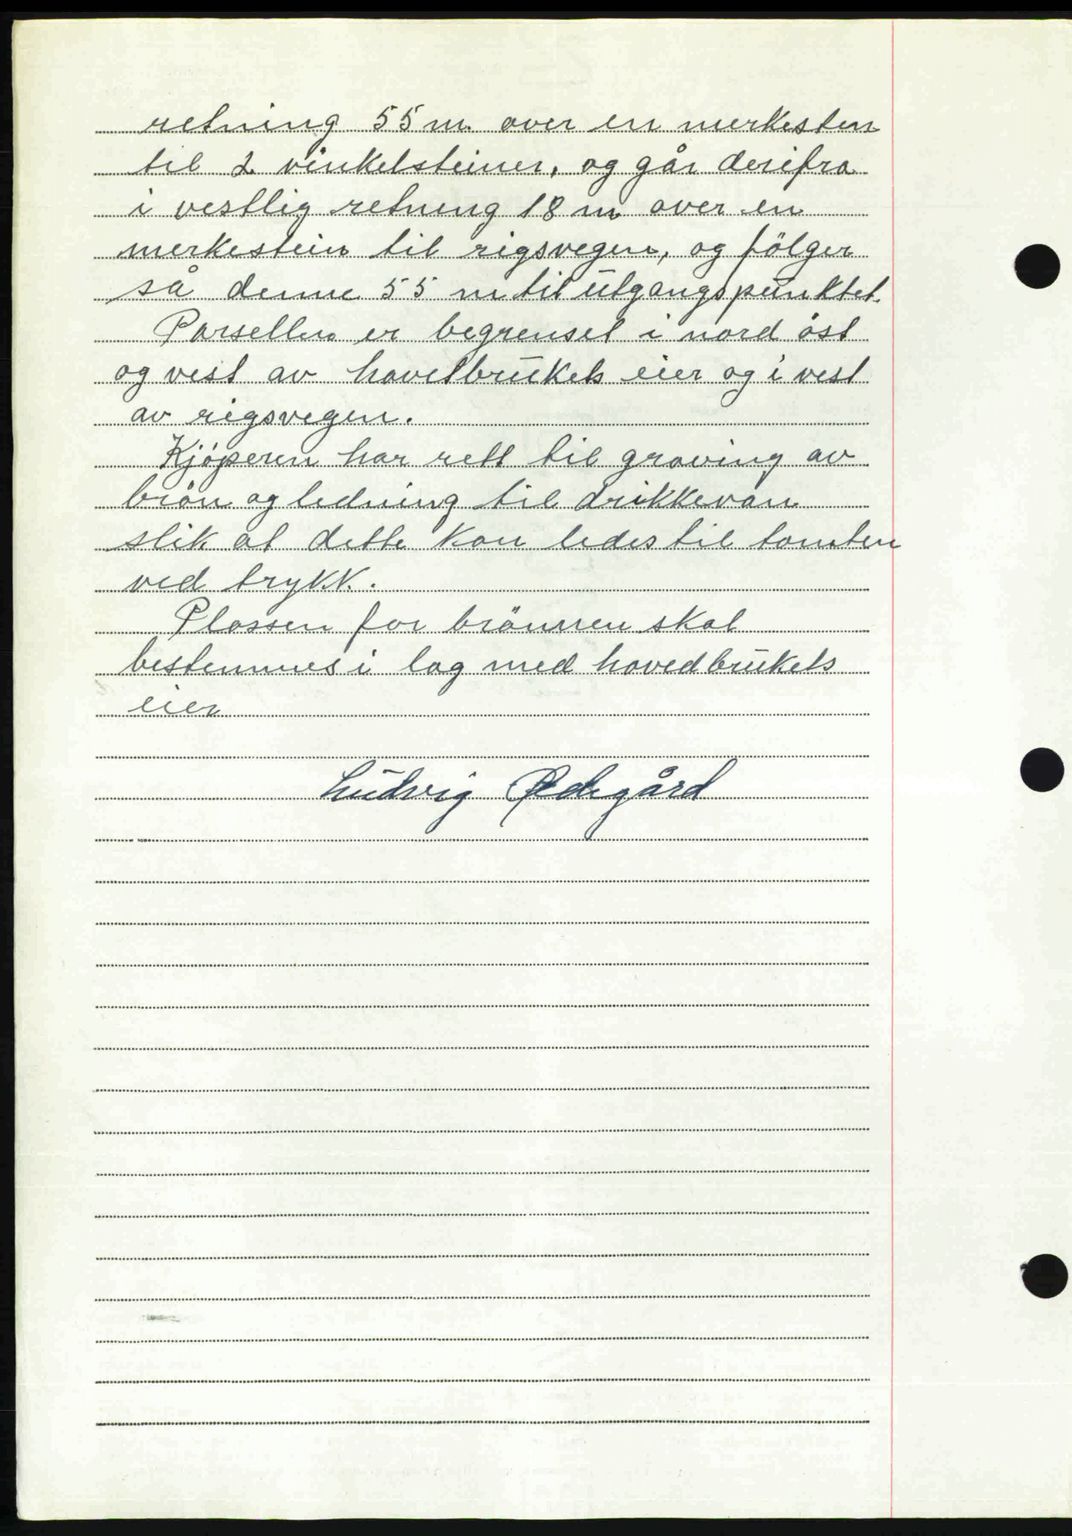 retning 55 m. over en merkesten
til 2 vinkelsteiner, og går derifra
i vestlig retning 18 m over en
merkestein til rigsvegen, og fölger
så denne 55 m til utgangspunktet.
Parsellen er begrenset i nord öst
og vest av hovetbrukets eier og i vest
av rigsvegen.
Kjöperen har rett til graving av
brön og ledning til drikkevan
slik at dette kan ledes til tomten
ved trykk.
Plassen for brönnen skal
bestemmes i lag med hovedbrukets
eier
Ludvig Ødegård